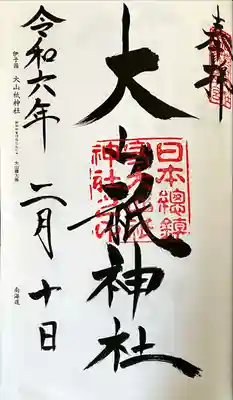 奉拝
大山祇神社
日本總鎮
神社
令和六年 二月 十日
伊予国 大山祇神社
南海道